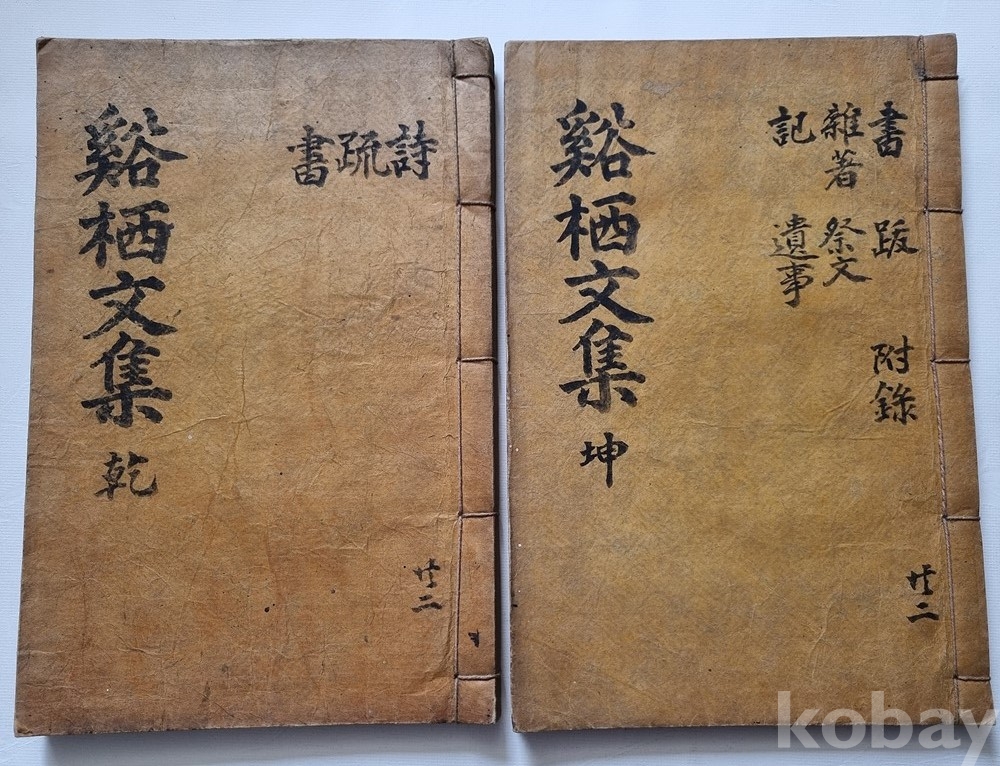 谿栖文集 乾
詩
疏
書
共二
谿栖文集 坤
書 跋 附錄
雜著 祭文
記 遺事
共二
kobay